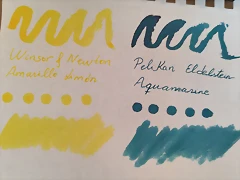 Winsor & Newton
Amarillo limón
Pelikan Eldelstein
Aquamarine